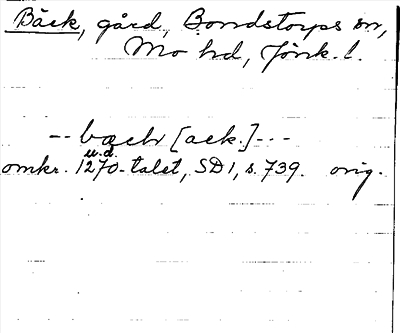 Bäck, gård, Bondstorps sn,
Mo hd, Jönk. l.
-- bæcly [ack.] ---
u.d.
omkr. 1270-talet, SD 1, s. 739. orig.